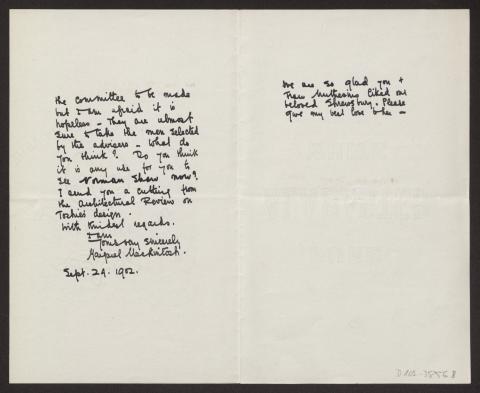 the Committee to be made
but I am afraid it is
hopeless – They are almost
sure to take the men selected
by the advisers – What do
you think? Do you think
it is any use for you to
see Norman Shaw now?
I send you a cutting from
the Architectural Review on
Toshie's design.
With kindest regards.
I am
Yours very sincerely
Margaret Mackintosh.
Sept. 29. 1902.
We are so glad you +
Frau Muthesius liked our
beloved Shrewsbury. Please
give my best love to her –